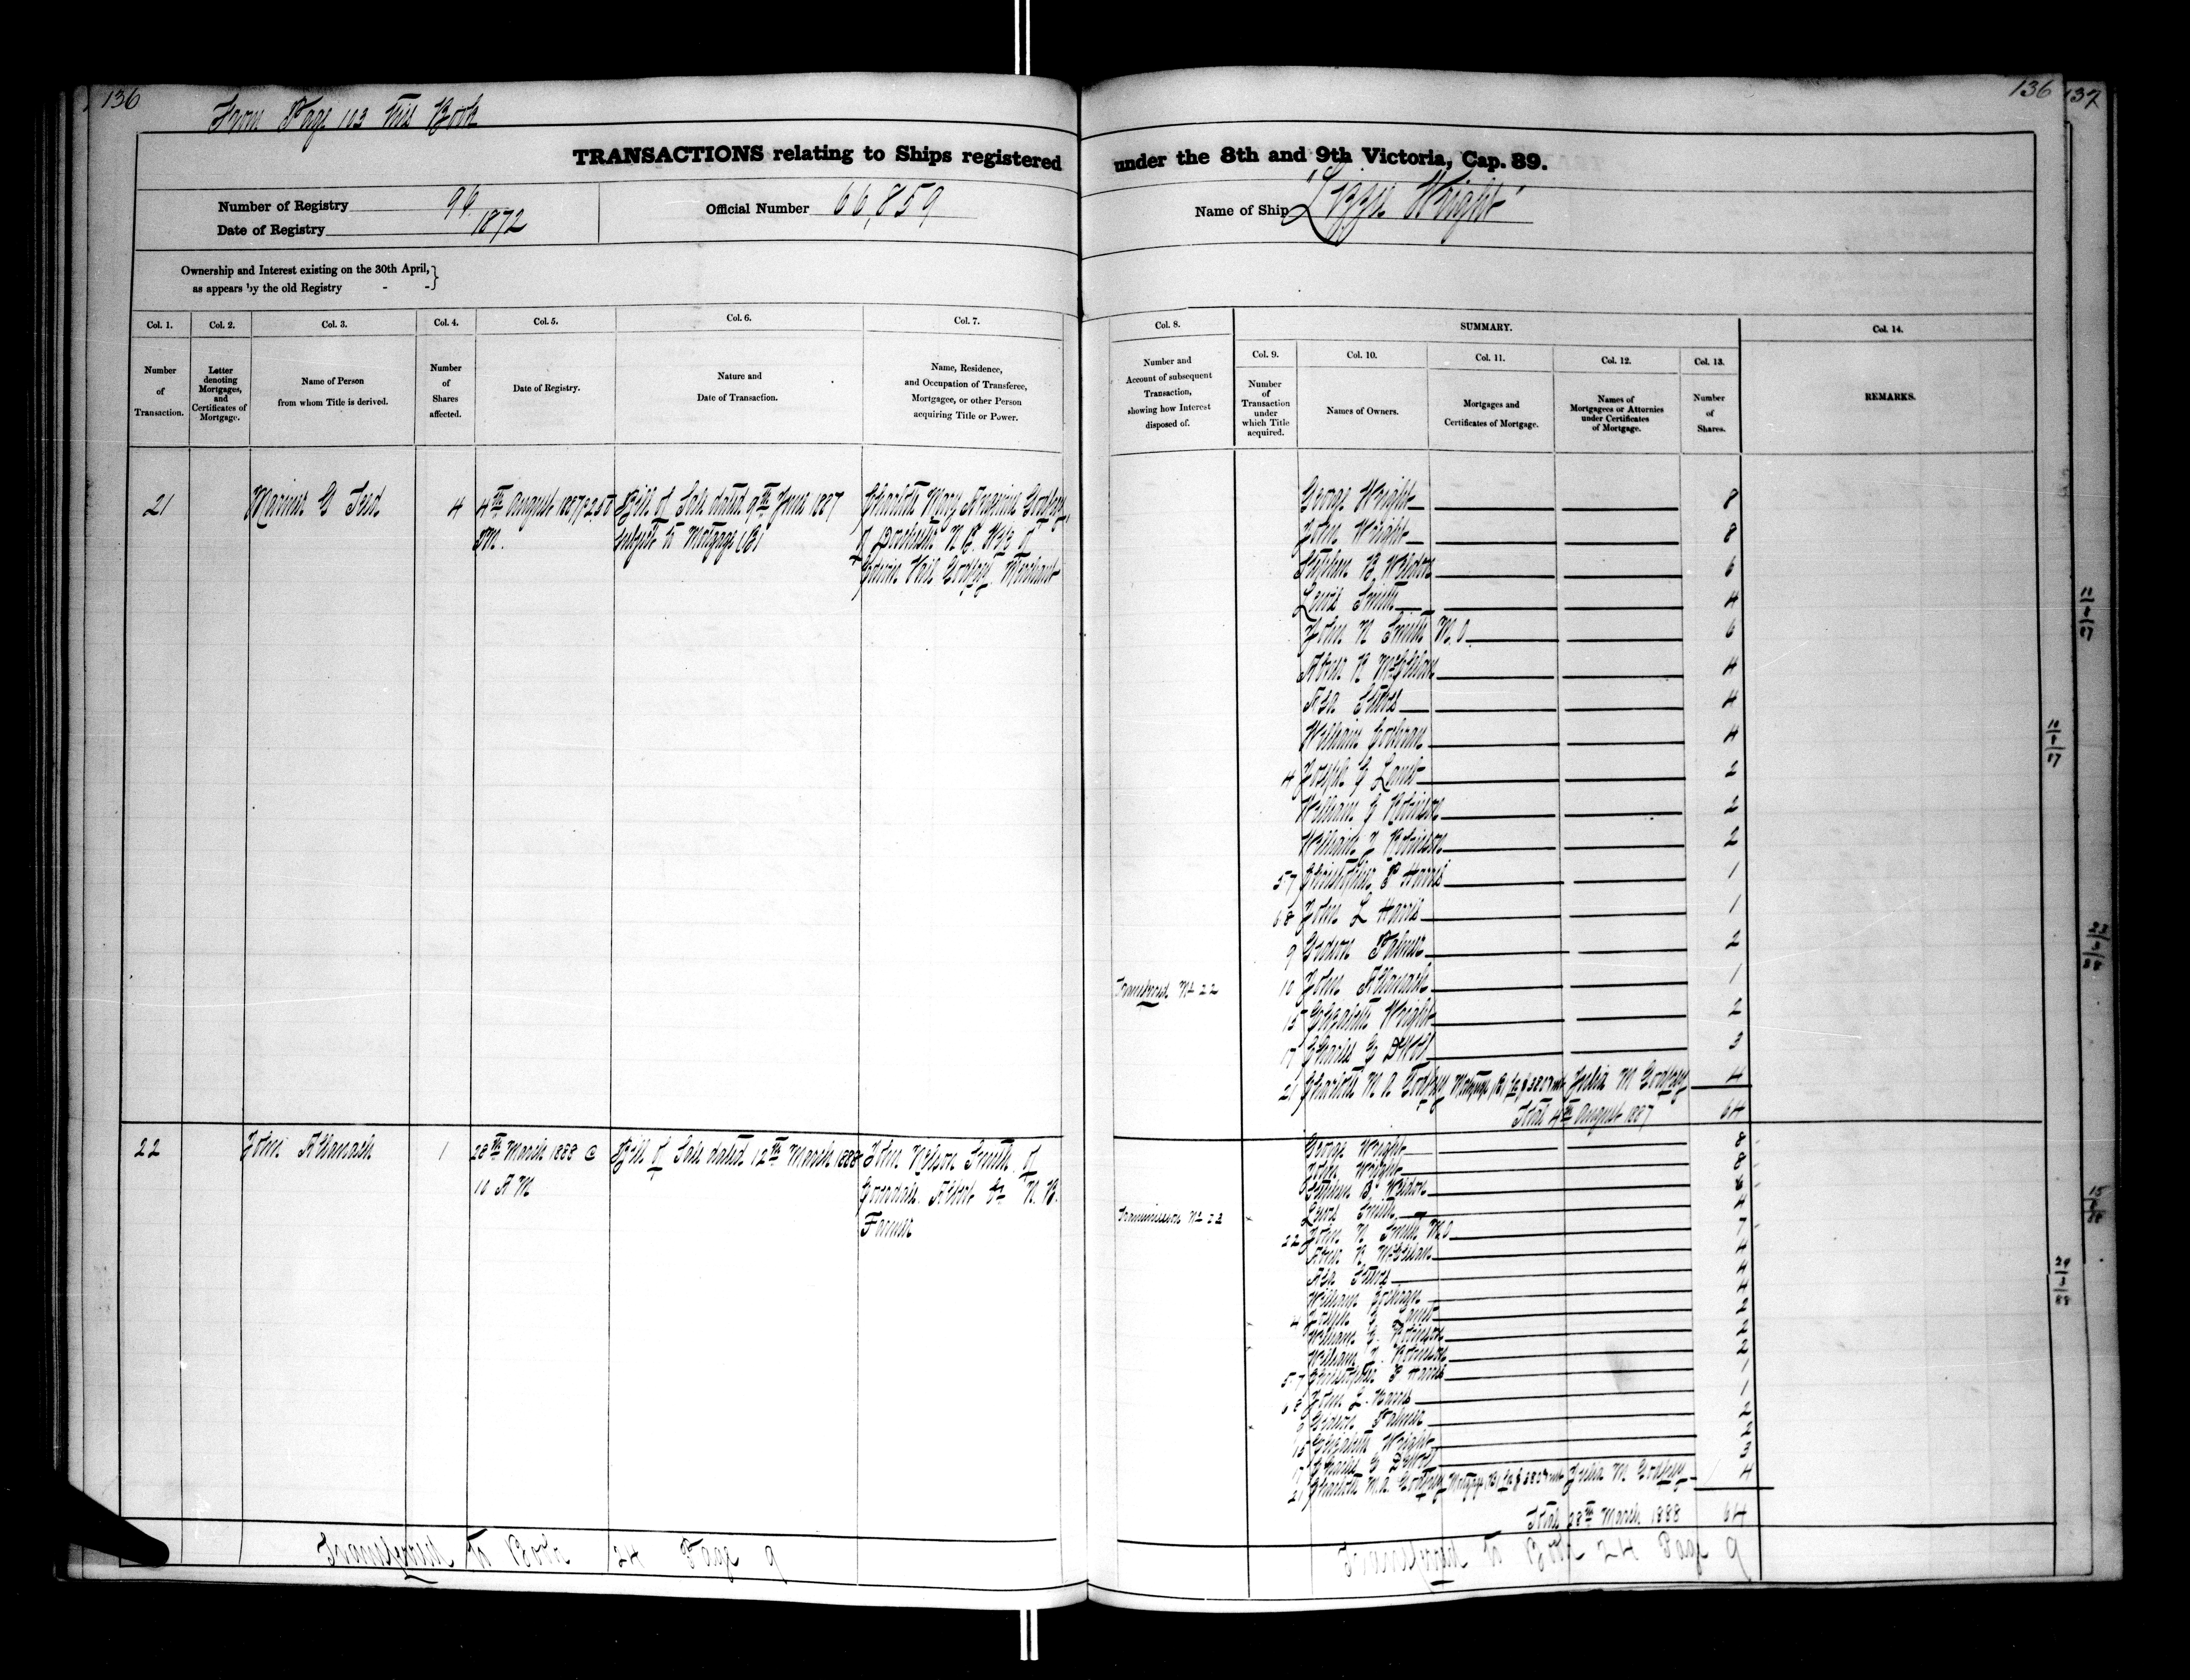 136
From Page 103 this Book
136
137
TRANSACTIONS relating to Ships registered under the 8th and 9th Victoria, Cap. 89.
Number of Registry 96
Date of Registry 1872
Official Number 66,859
Name of Ship "Lizzie Wright"
Ownership and Interest existing on the 30th April,
as appears by the old Registry - -
Col. 1.
Number
of
Transaction.
Col. 2.
Letter
denoting
Mortgages,
and
Certificates of
Mortgage.
Col. 3.
Name of Person
from whom Title is derived.
Col. 4.
Number
of
Shares
affected.
Col. 5.
Date of Registry.
Col. 6.
Nature and
Date of Transaction.
Col. 7.
Name, Residence,
and Occupation of Transferee,
Mortgagee, or other Person
acquiring Title or Power.
Col. 8.
Number and
Account of subsequent
Transaction,
showing how Interest
disposed of.
SUMMARY.
Col. 9.
Number
of
Transaction
under
which Title
acquired.
Col. 10.
Names of Owners.
Col. 11.
Mortgages and
Certificates of Mortgage.
Col. 12.
Names of
Mortgagees or Attornies
under Certificates
of Mortgage.
Col. 13.
Number
of
Shares.
Col. 14.
REMARKS.
21
4
4th August 1887
P.M.
Bill of Sale dated 9th June 1887
subject to Mortgage (B)
Charlotte Mary Godfrey
of Dorchester N.B. Wife of
Vail Godfrey, Merchant
George Wright 8
John Wright 8
Stephen B Weldon 6
Lewis Smith 4
John N Smith M.D 6
Abner R McClelan 4
Asa Steves 4
William Cochran 4
4 Joseph G Lamb 2
William G Robinson 2
William J Robinson 2
5 7 Christopher P Harris 1
6 8 John L Harris 1
9 Gideon Palmer 2
Transferred No 22
10 John 1
15 Elizabeth Wright 2
17 Charles G 3
21 Charlotte M. A. Godfrey Mortgage (B) Julia M Godfrey 4
Total 4th August 1887 64
22
John
1
28th March 1888 @
10 A M
Bill of Sale dated 12th March 1888
John Nelson Smith of
Albert Co N. B.
Farmer
George Wright 8
John Wright 8
Stephen B. Weldon
Lewis Smith 4
Transmission No 23
22 John N Smith M.D 7
Abner R McClelan 4
Asa Steves 4
William Cochran 4
4 Joseph G Lamb 2
William G. Robinson 2
William J. Robinson 2
5 7 Christopher P Harris 1
6 8 John L. Harris 1
9 Gideon Palmer 2
15 Elizabeth Wright 2
17 Charles G
21 Charlotte M.A. Godfrey Mortgage (B) Julia M Godfrey 4
Total 28th March 1888 64
Transferred to Book 24 Page 9
Transferred to Book 24 Page 9